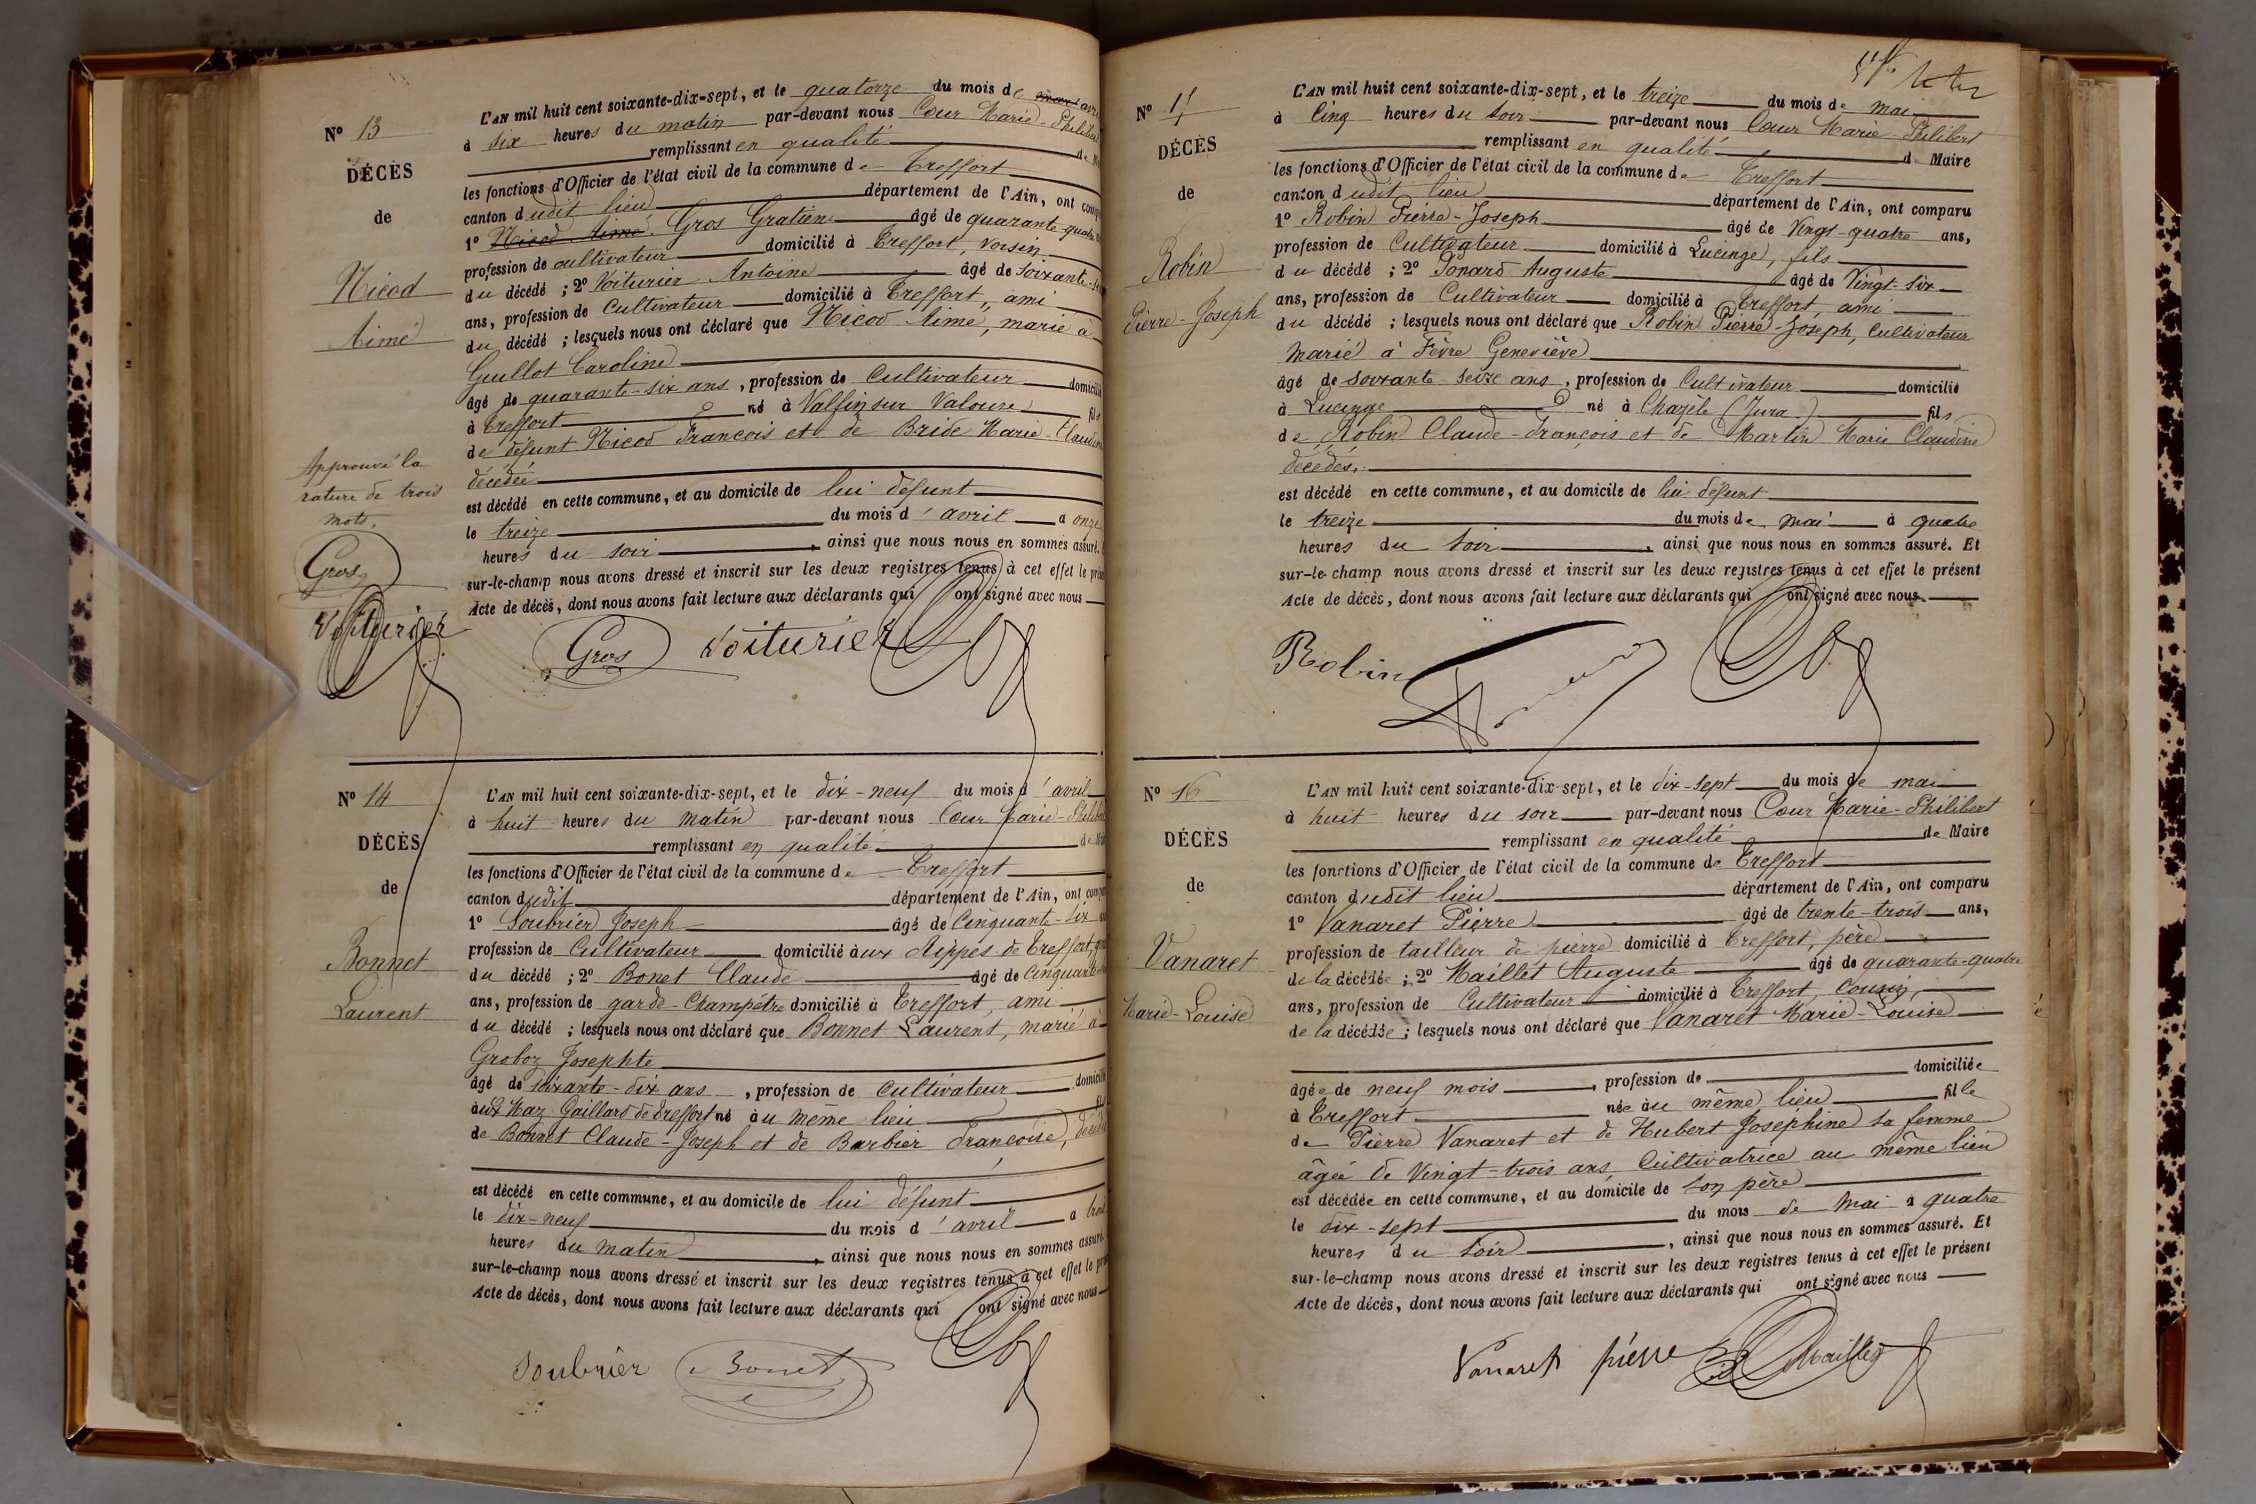 Nº 13
DÉCÈS
de
Nicod
Aimé
Approuvé la
rature de trois
mots.
Gros
Voiturier
L'AN mil huit cent soixante-dix-sept, et le quatorze du mois de
à six heures du matin par-devant nous Cœur Marie-Philibert
remplissant en qualité de
les fonctions d'Officier de l'état civil de la commune de Treffort
canton dudit lieu département de l'Ain, ont
1º Nicod Aimé. Gros Gratien âgé de quarante-quatre
profession de cultivateur domicilié à Treffort, voisin
du décédé ; 2º Voiturier Antoine âgé de soixante-
ans, profession de Cultivateur domicilié à Treffort, ami
du décédé ; lesquels nous ont déclaré que Nicod Aimé, marié à
Guillot Caroline
âgé de quarante-six ans, profession de Cultivateur domicilié
à Treffort né à Valfin sur Valouse fils
de défunt Nicod François et de Bride Marie-Claudine
décédée
est décédé en cette commune, et au domicile de lui défunt
le treize du mois d'avril à onze
heures du soir, ainsi que nous nous en sommes assuré.
sur-le-champ nous avons dressé et inscrit sur les deux registres tenus à cet effet le
Acte de décès, dont nous avons fait lecture aux déclarants qui ont signé avec nous
Gros Voiturier
Nº 14
DÉCÈS
de
Bonnet
Laurent
L'AN mil huit cent soixante-dix-sept, et le dix-neuf du mois d'avril
à huit heures du matin par-devant nous Cœur Marie-Philibert
remplissant en qualité de
les fonctions d'Officier de l'état civil de la commune de Treffort
canton dudit département de l'Ain, ont
1º Soubrier Joseph âgé de Cinquante-dix
profession de Cultivateur domicilié aux Rippes de Treffort,
du décédé ; 2º Bonet Claude âgé de Cinquante-
ans, profession de garde-Champêtre domicilié à Treffort, ami
du décédé ; lesquels nous ont déclaré que Bonnet Laurent, marié à
Groboz Josephte
âgé de soixante-dix ans, profession de Cultivateur domicilié
aux Maz Gaillard de Treffort né au même lieu
de Bonnet Claude-Joseph et de Barbier Françoise,
est décédé en cette commune, et au domicile de lui défunt
le dix-neuf du mois d'avril à
heures du matin, ainsi que nous nous en sommes assuré.
sur-le-champ nous avons dressé et inscrit sur les deux registres tenus à cet effet le
Acte de décès, dont nous avons fait lecture aux déclarants qui ont signé avec nous
Soubrier Bonet
Nº 15
DÉCÈS
de
Robin
Pierre-Joseph
L'AN mil huit cent soixante-dix-sept, et le treize du mois de mai
à Cinq heures du soir par-devant nous Cœur Marie-Philibert
remplissant en qualité de Maire
les fonctions d'Officier de l'état civil de la commune de Treffort
canton dudit lieu département de l'Ain, ont comparu
1º Robin Pierre-Joseph âgé de Vingt-quatre ans,
profession de Cultivateur domicilié à Lucinge, fils
du décédé ; 2º Ponard Auguste âgé de Vingt-six
ans, profession de Cultivateur domicilié à Treffort, ami
du décédé ; lesquels nous ont déclaré que Robin Pierre-Joseph, Cultivateur
marié à Fèvre Geneviève
âgé de soixante-seize ans, profession de Cultivateur domicilié
à Lucinge né à Chazèle (Jura) fils
de Robin Claude-François et de Martin Marie Claudine
décédés.
est décédé en cette commune, et au domicile de lui défunt
le treize du mois de mai à quatre
heures du soir, ainsi que nous nous en sommes assuré. Et
sur-le-champ nous avons dressé et inscrit sur les deux registres tenus à cet effet le présent
Acte de décès, dont nous avons fait lecture aux déclarants qui ont signé avec nous.
Robin
Nº 16
DÉCÈS
de
Vanaret
Marie-Louise
L'AN mil huit cent soixante-dix-sept, et le dix-sept du mois de mai
à huit heures du soir par-devant nous Cœur Marie-Philibert
remplissant en qualité de Maire
les fonctions d'Officier de l'état civil de la commune de Treffort
canton dudit lieu département de l'Ain, ont comparu
1º Vanaret Pierre âgé de trente-trois ans,
profession de tailleur de pierre domicilié à Treffort, père
de la décédée ; 2º Maillet Auguste âgé de quarante-quatre
ans, profession de Cultivateur domicilié à Treffort, Cousin,
de la décédée ; lesquels nous ont déclaré que Vanaret Marie-Louise
âgée de neuf mois, profession de domiciliée
à Treffort née au même lieu fille
de Pierre Vanaret et de Hubert Joséphine sa femme
âgée de Vingt-trois ans, Cultivatrice au même lieu
est décédée en cette commune, et au domicile de son père
le dix-sept du mois de mai à quatre
heures du soir, ainsi que nous nous en sommes assuré. Et
sur-le-champ nous avons dressé et inscrit sur les deux registres tenus à cet effet le présent
Acte de décès, dont nous avons fait lecture aux déclarants qui ont signé avec nous
Vanaret pierre Maillet